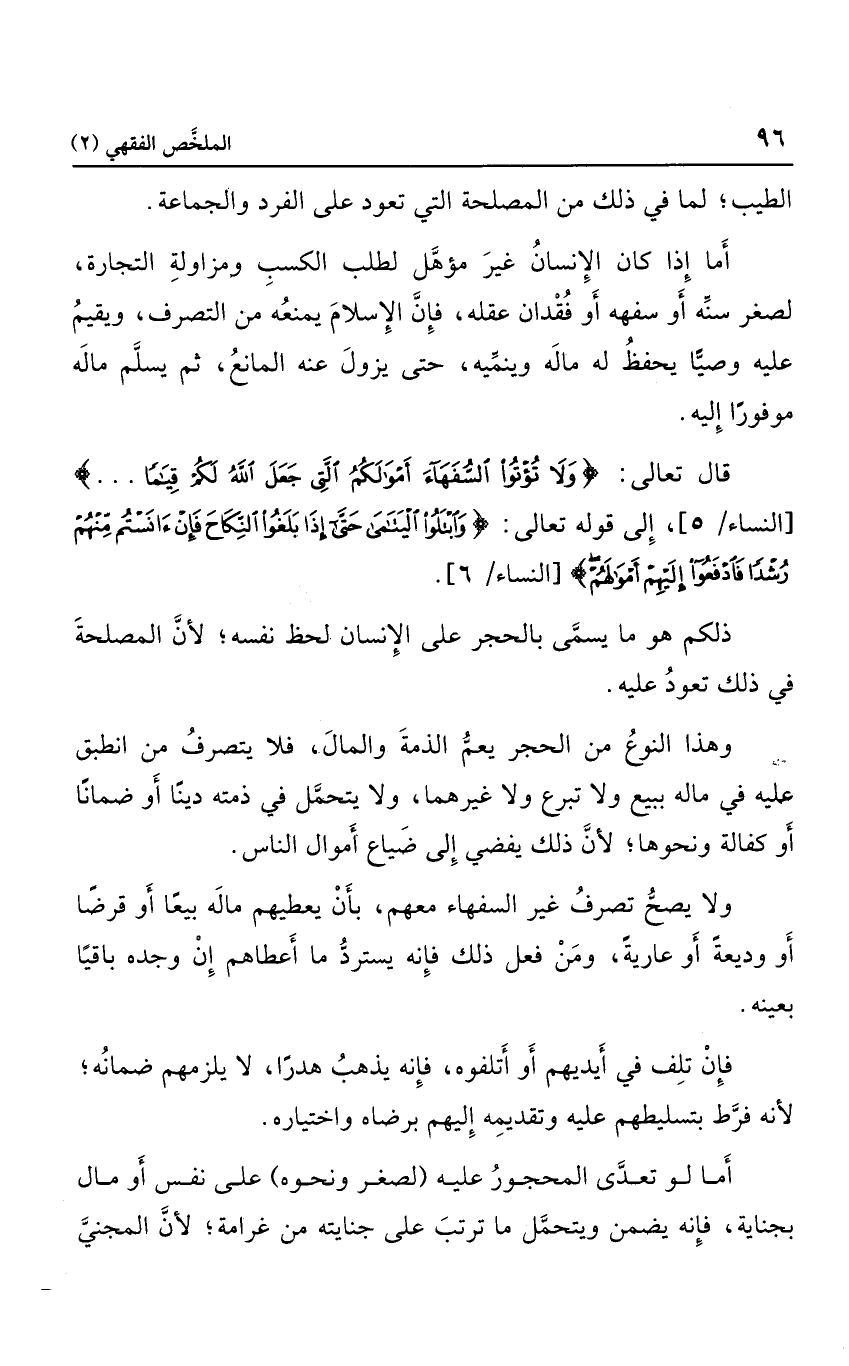 ٩٦
الملخَّص الفقهي (٢)
الطيب؛ لما في ذلك من المصلحة التي تعود على الفرد والجماعة.
أَما إِذا كان الإِنسانُ غيرَ مؤهَّل لطلب الكسبِ ومزاولةِ التجارة،
لصغر سنِّه أَو سفهه أَو فُقْدان عقله، فإِنَّ الإِسلامَ يمنعُه من التصرف، ويقيمُ
عليه وصيًّا يحفظُ له مالَه وينمِّيه، حتى يزولَ عنه المانعُ، ثم يسلَّم مالَه
موفورًا إِليه.
قال تعالى: ﴿وَلَا تُؤْتُوا۟ ٱلسُّفَهَآءَ أَمْوَٰلَكُمُ ٱلَّتِى جَعَلَ ٱللَّهُ لَكُمْ قِيَٰمًا ...﴾
[النساء/ ٥]، إِلى قوله تعالى: ﴿وَٱبْتَلُوا۟ ٱلْيَتَٰمَىٰ حَتَّىٰٓ إِذَا بَلَغُوا۟ ٱلنِّكَاحَ فَإِنْ ءَانَسْتُم مِّنْهُمْ
رُشْدًا فَٱدْفَعُوٓا۟ إِلَيْهِمْ أَمْوَٰلَهُمْ ۖ﴾ [النساء/ ٦].
ذلكم هو ما يسمَّى بالحجر على الإِنسان لحظ نفسه؛ لأنَّ المصلحةَ
في ذلك تعودُ عليه.
وهذا النوعُ من الحجر يعمُّ الذمةَ والمالَ، فلا يتصرفُ من انطبق
عليه في ماله ببيع ولا تبرع ولا غيرهما، ولا يتحمَّل في ذمته دينًا أَو ضمانًا
أَو كفالة ونحوها؛ لأنَّ ذلك يفضي إِلى ضَياع أَموال الناس.
ولا يصحُّ تصرفُ غير السفهاء معهم، بأَنْ يعطيهم مالَه بيعًا أَو قرضًا
أَو وديعةً أَو عاريةً، ومَنْ فعل ذلك فإِنه يستردُّ ما أَعطاهم إِنْ وجده باقيًا
بعينه.
فإِنْ تلِف في أَيديهم أَو أَتلفوه، فإِنه يذهبُ هدرًا، لا يلزمهم ضمانُه؛
لأنه فرَّط بتسليطهم عليه وتقديمِه إِليهم برضاه واختياره.
أَما لو تعدَّى المحجورُ عليه (لصغر ونحوه) على نفس أَو مال
بجناية، فإِنه يضمن ويتحمَّل ما ترتبَ على جنايته من غرامة؛ لأنَّ المجنيَّ